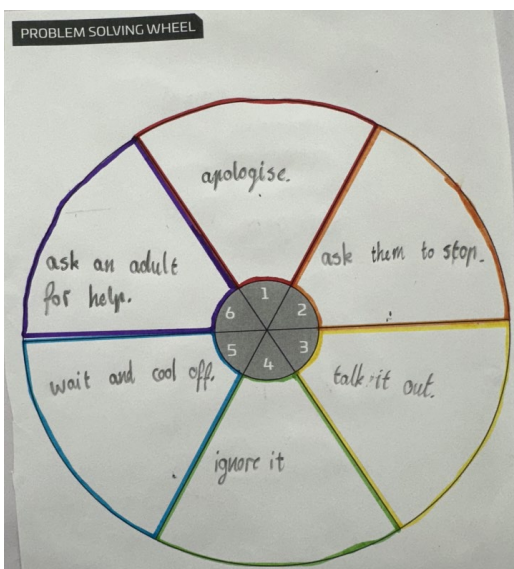 PROBLEM SOLVING WHEEL
apologise.
ask them to stop.
talk it out.
ignore it
wait and cool off.
ask an adult
for help.
1
2
3
4
5
6